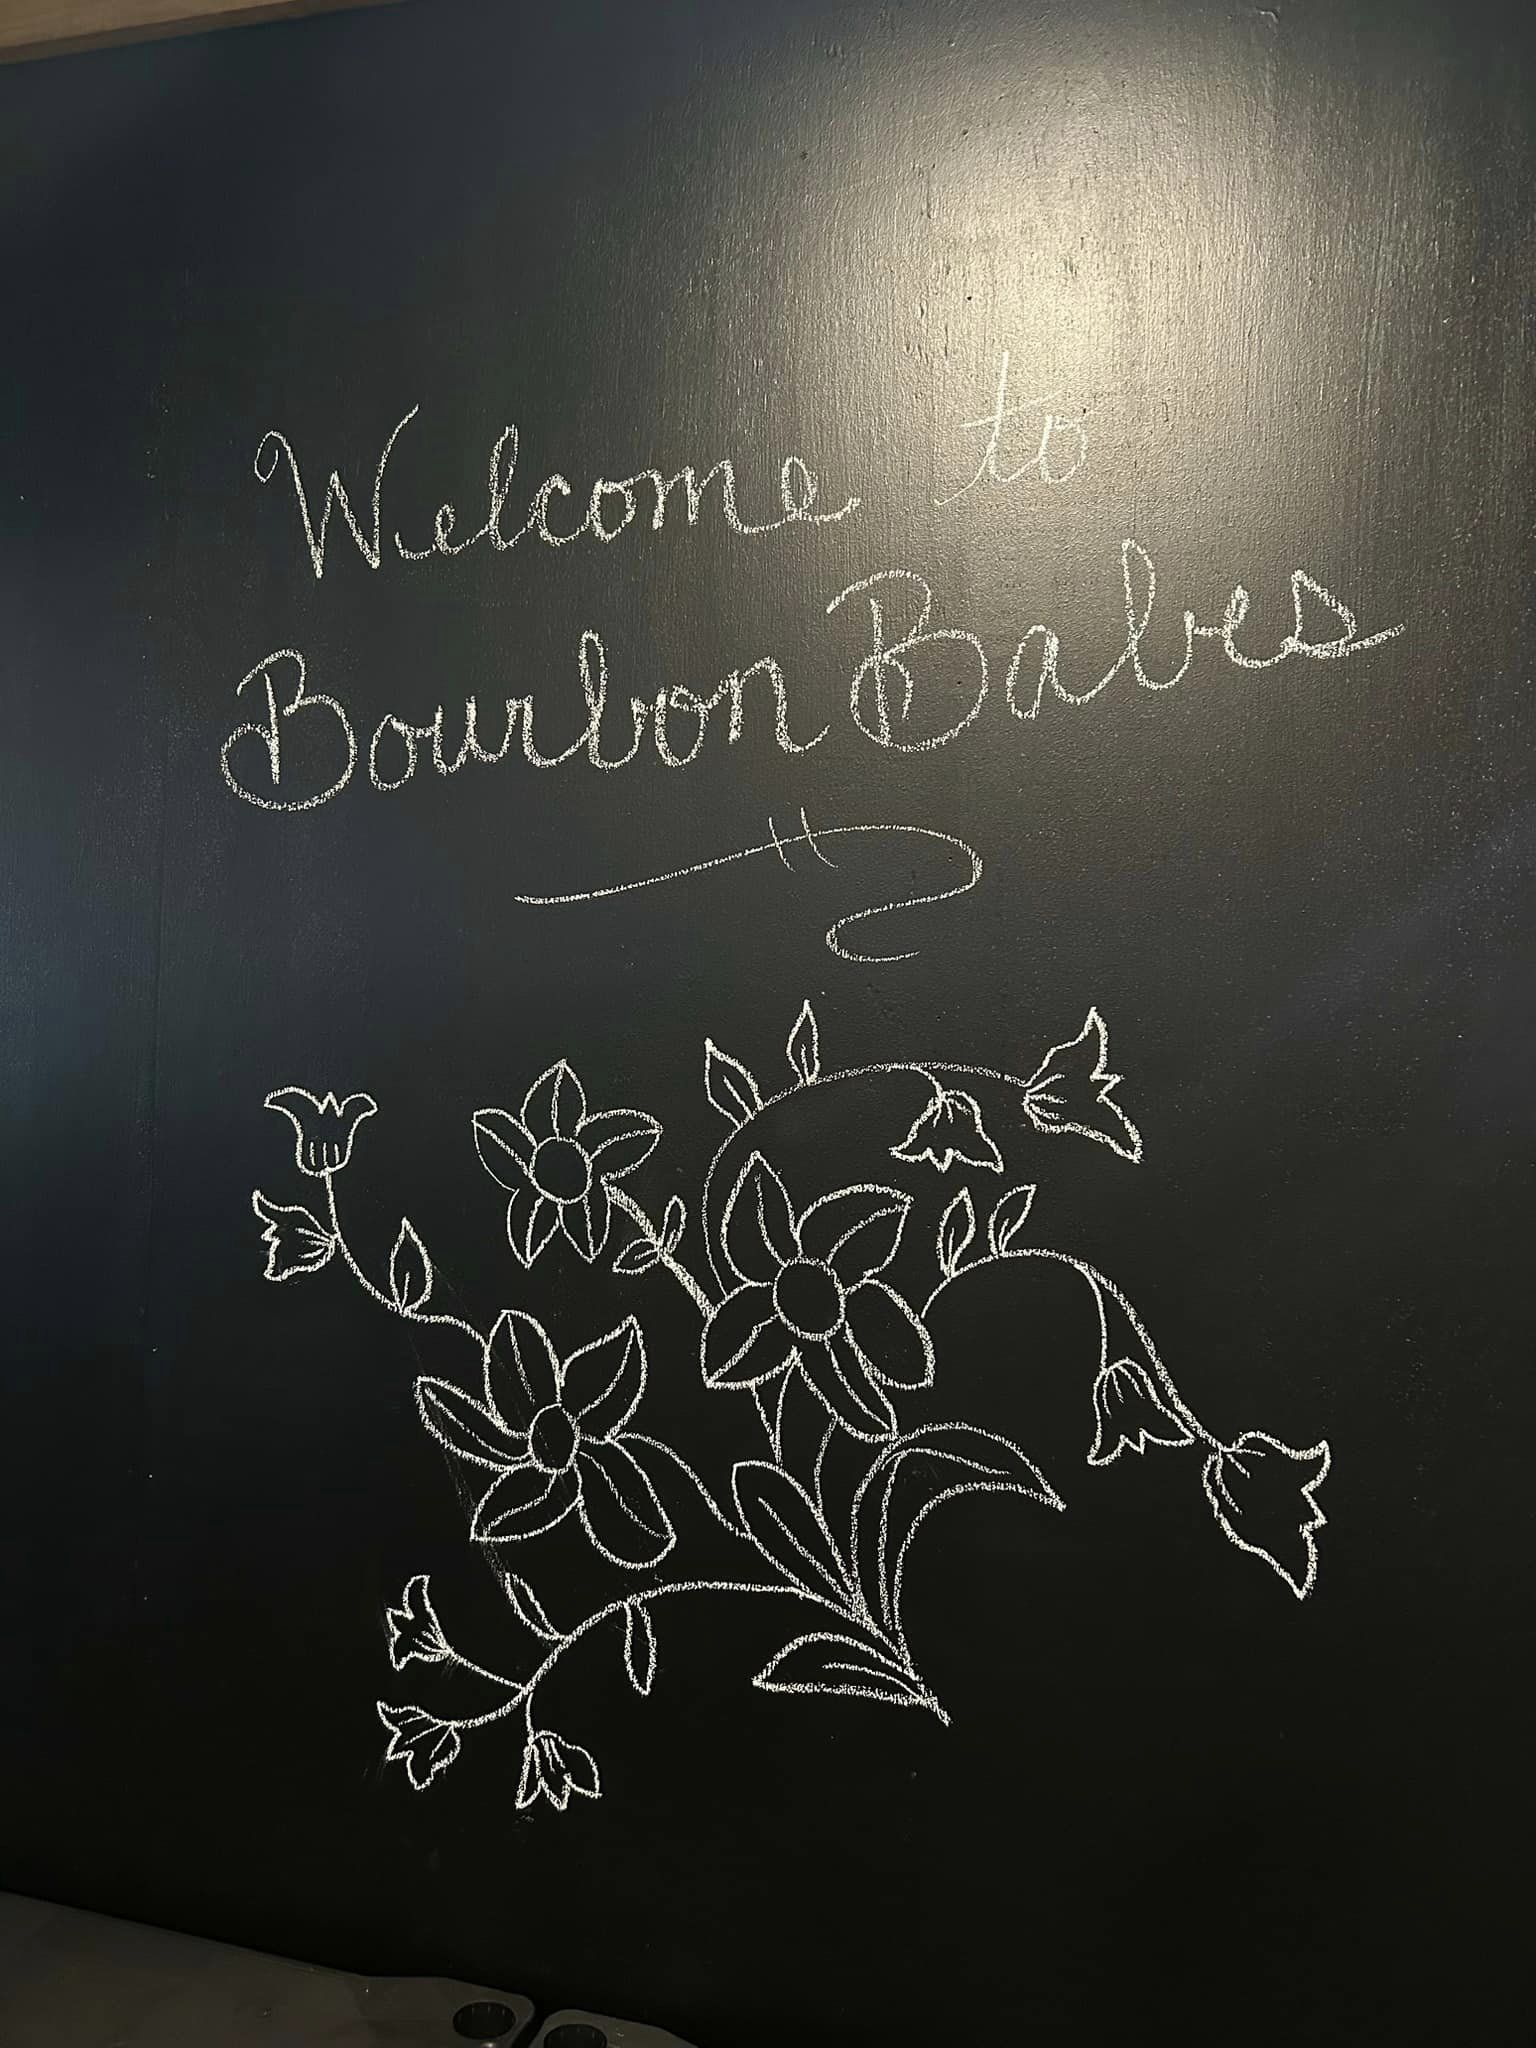 Welcome to
Bourbon Babes